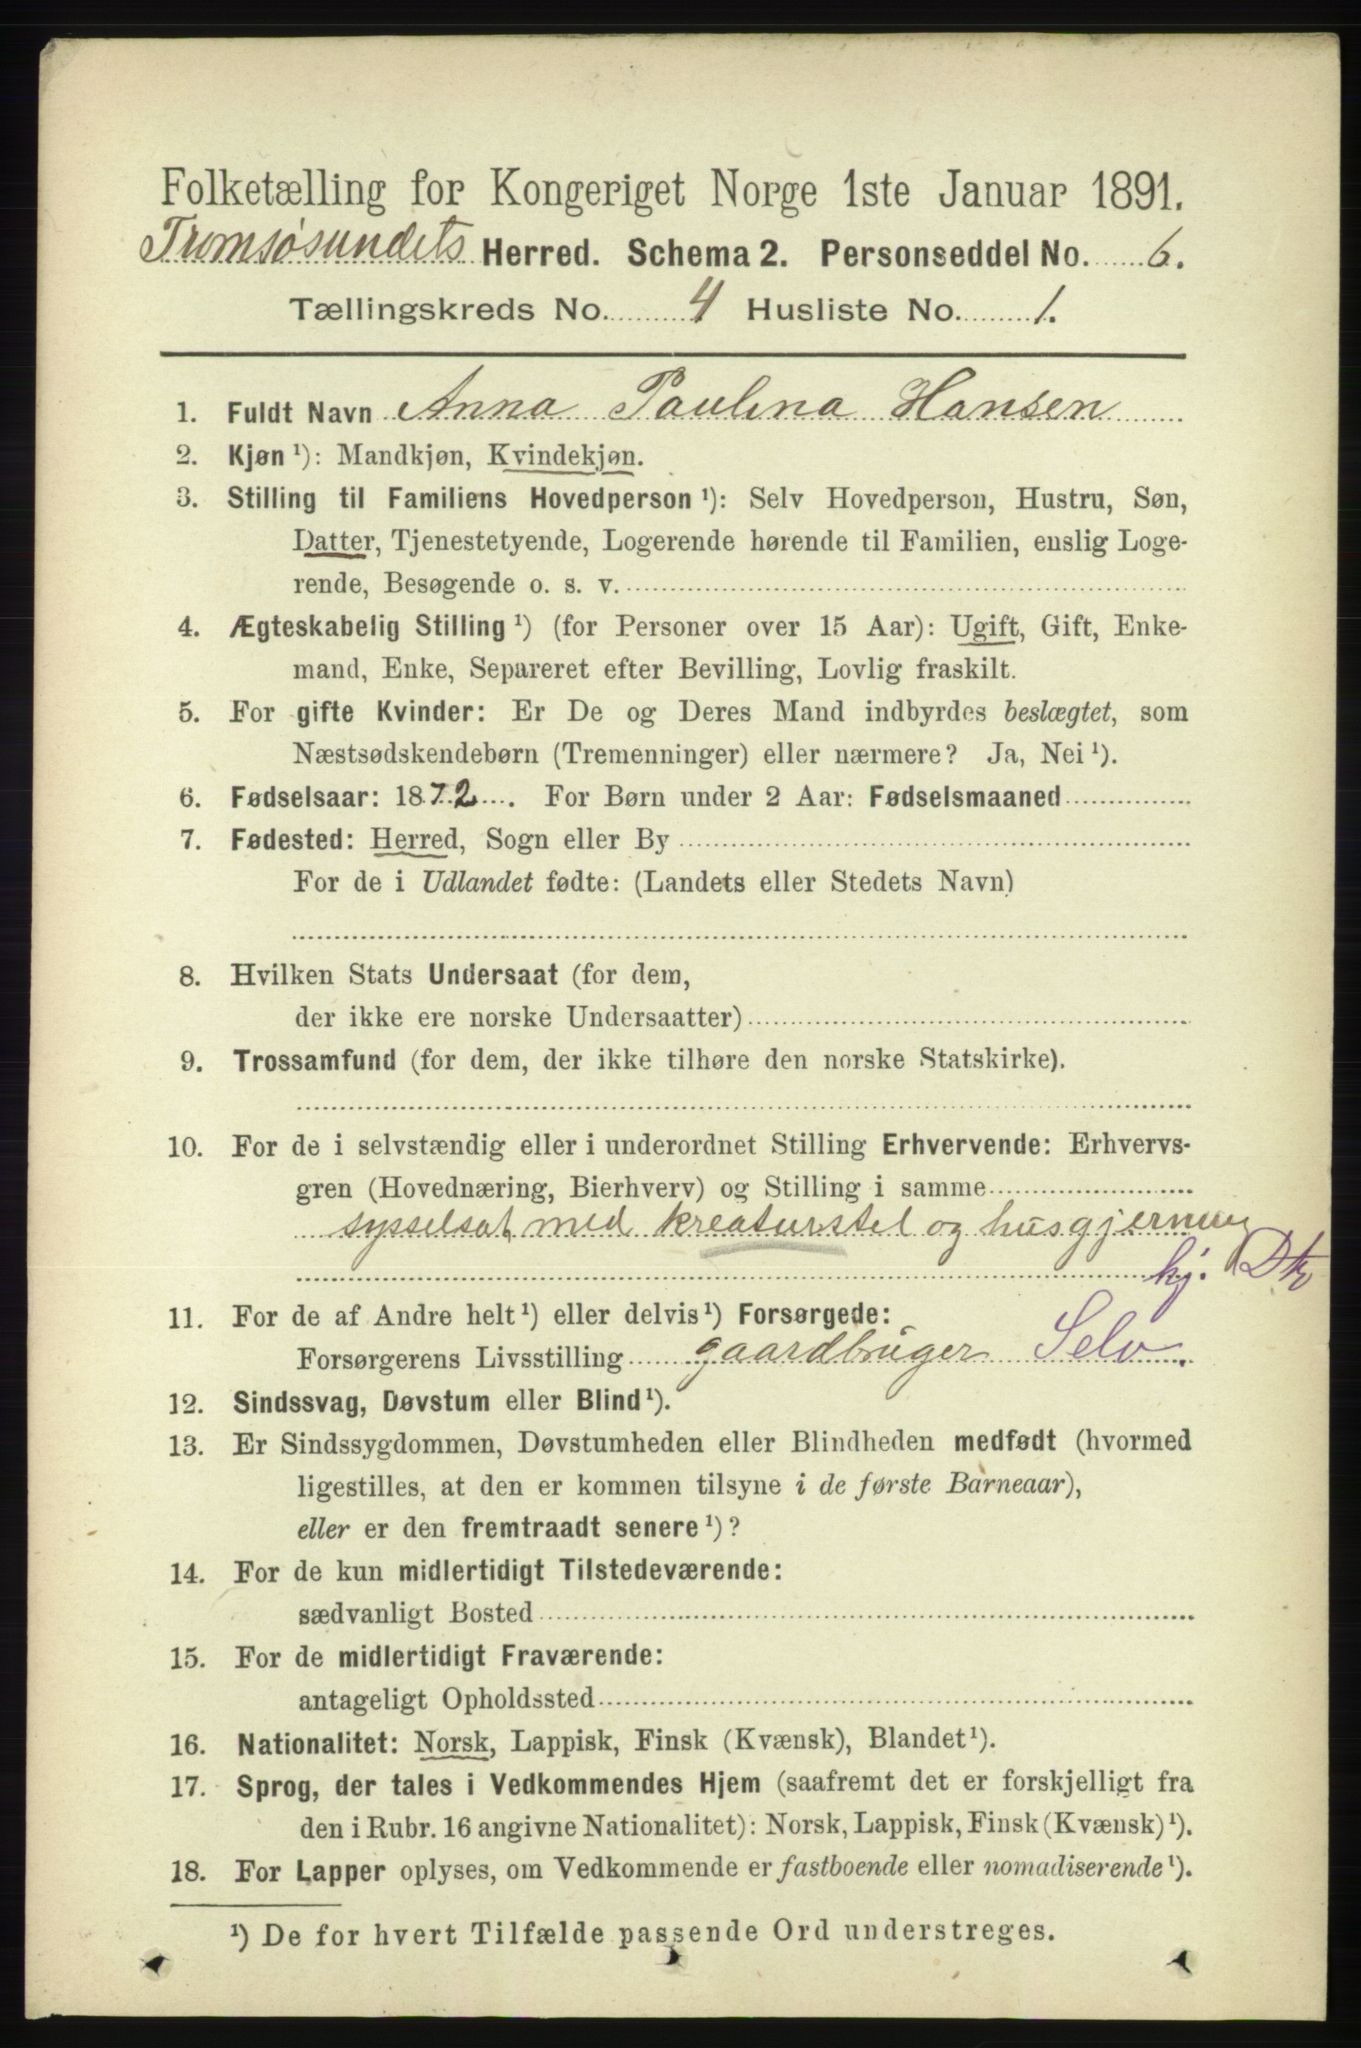 Folketælling for Kongeriget Norge 1ste Januar 1891.
Tromsøsundets Herred. Schema 2. Personseddel No. 6.
Tællingskreds No. 4 Husliste No. 1.
1. Fuldt Navn Anna Paulina Hansen
2. Kjøn ¹): Mandkjøn, Kvindekjøn.
3. Stilling til Familiens Hovedperson ¹): Selv Hovedperson, Hustru, Søn,
Datter, Tjenestetyende, Logerende hørende til Familien, enslig Loge-
rende, Besøgende o. s. v.
4. Ægteskabelig Stilling ¹) (for Personer over 15 Aar): Ugift, Gift, Enke-
mand, Enke, Separeret efter Bevilling, Lovlig fraskilt.
5. For gifte Kvinder: Er De og Deres Mand indbyrdes beslægtet, som
Næstsødskendebørn (Tremenninger) eller nærmere? Ja, Nei ¹).
6. Fødselsaar: 1872. For Børn under 2 Aar: Fødselsmaaned
7. Fødested: Herred, Sogn eller By
For de i Udlandet fødte: (Landets eller Stedets Navn)
8. Hvilken Stats Undersaat (for dem,
der ikke ere norske Undersaatter)
9. Trossamfund (for dem, der ikke tilhøre den norske Statskirke).
10. For de i selvstændig eller i underordnet Stilling Erhvervende: Erhvervs-
gren (Hovednæring, Bierhverv) og Stilling i samme
sysselsat med kreaturstel og husgjerning
kj. Dtr
11. For de af Andre helt ¹) eller delvis ¹) Forsørgede:
Forsørgerens Livsstilling gaardbruger Selv.
12. Sindssvag, Døvstum eller Blind ¹).
13. Er Sindssygdommen, Døvstumheden eller Blindheden medfødt (hvormed
ligestilles, at den er kommen tilsyne i de første Barneaar),
eller er den fremtraadt senere ¹)?
14. For de kun midlertidigt Tilstedeværende:
sædvanligt Bosted
15. For de midlertidigt Fraværende:
antageligt Opholdssted
16. Nationalitet: Norsk, Lappisk, Finsk (Kvænsk), Blandet ¹).
17. Sprog, der tales i Vedkommendes Hjem (saafremt det er forskjelligt fra
den i Rubr. 16 angivne Nationalitet): Norsk, Lappisk, Finsk (Kvænsk) ¹).
18. For Lapper oplyses, om Vedkommende er fastboende eller nomadiserende ¹).
¹) De for hvert Tilfælde passende Ord understreges.